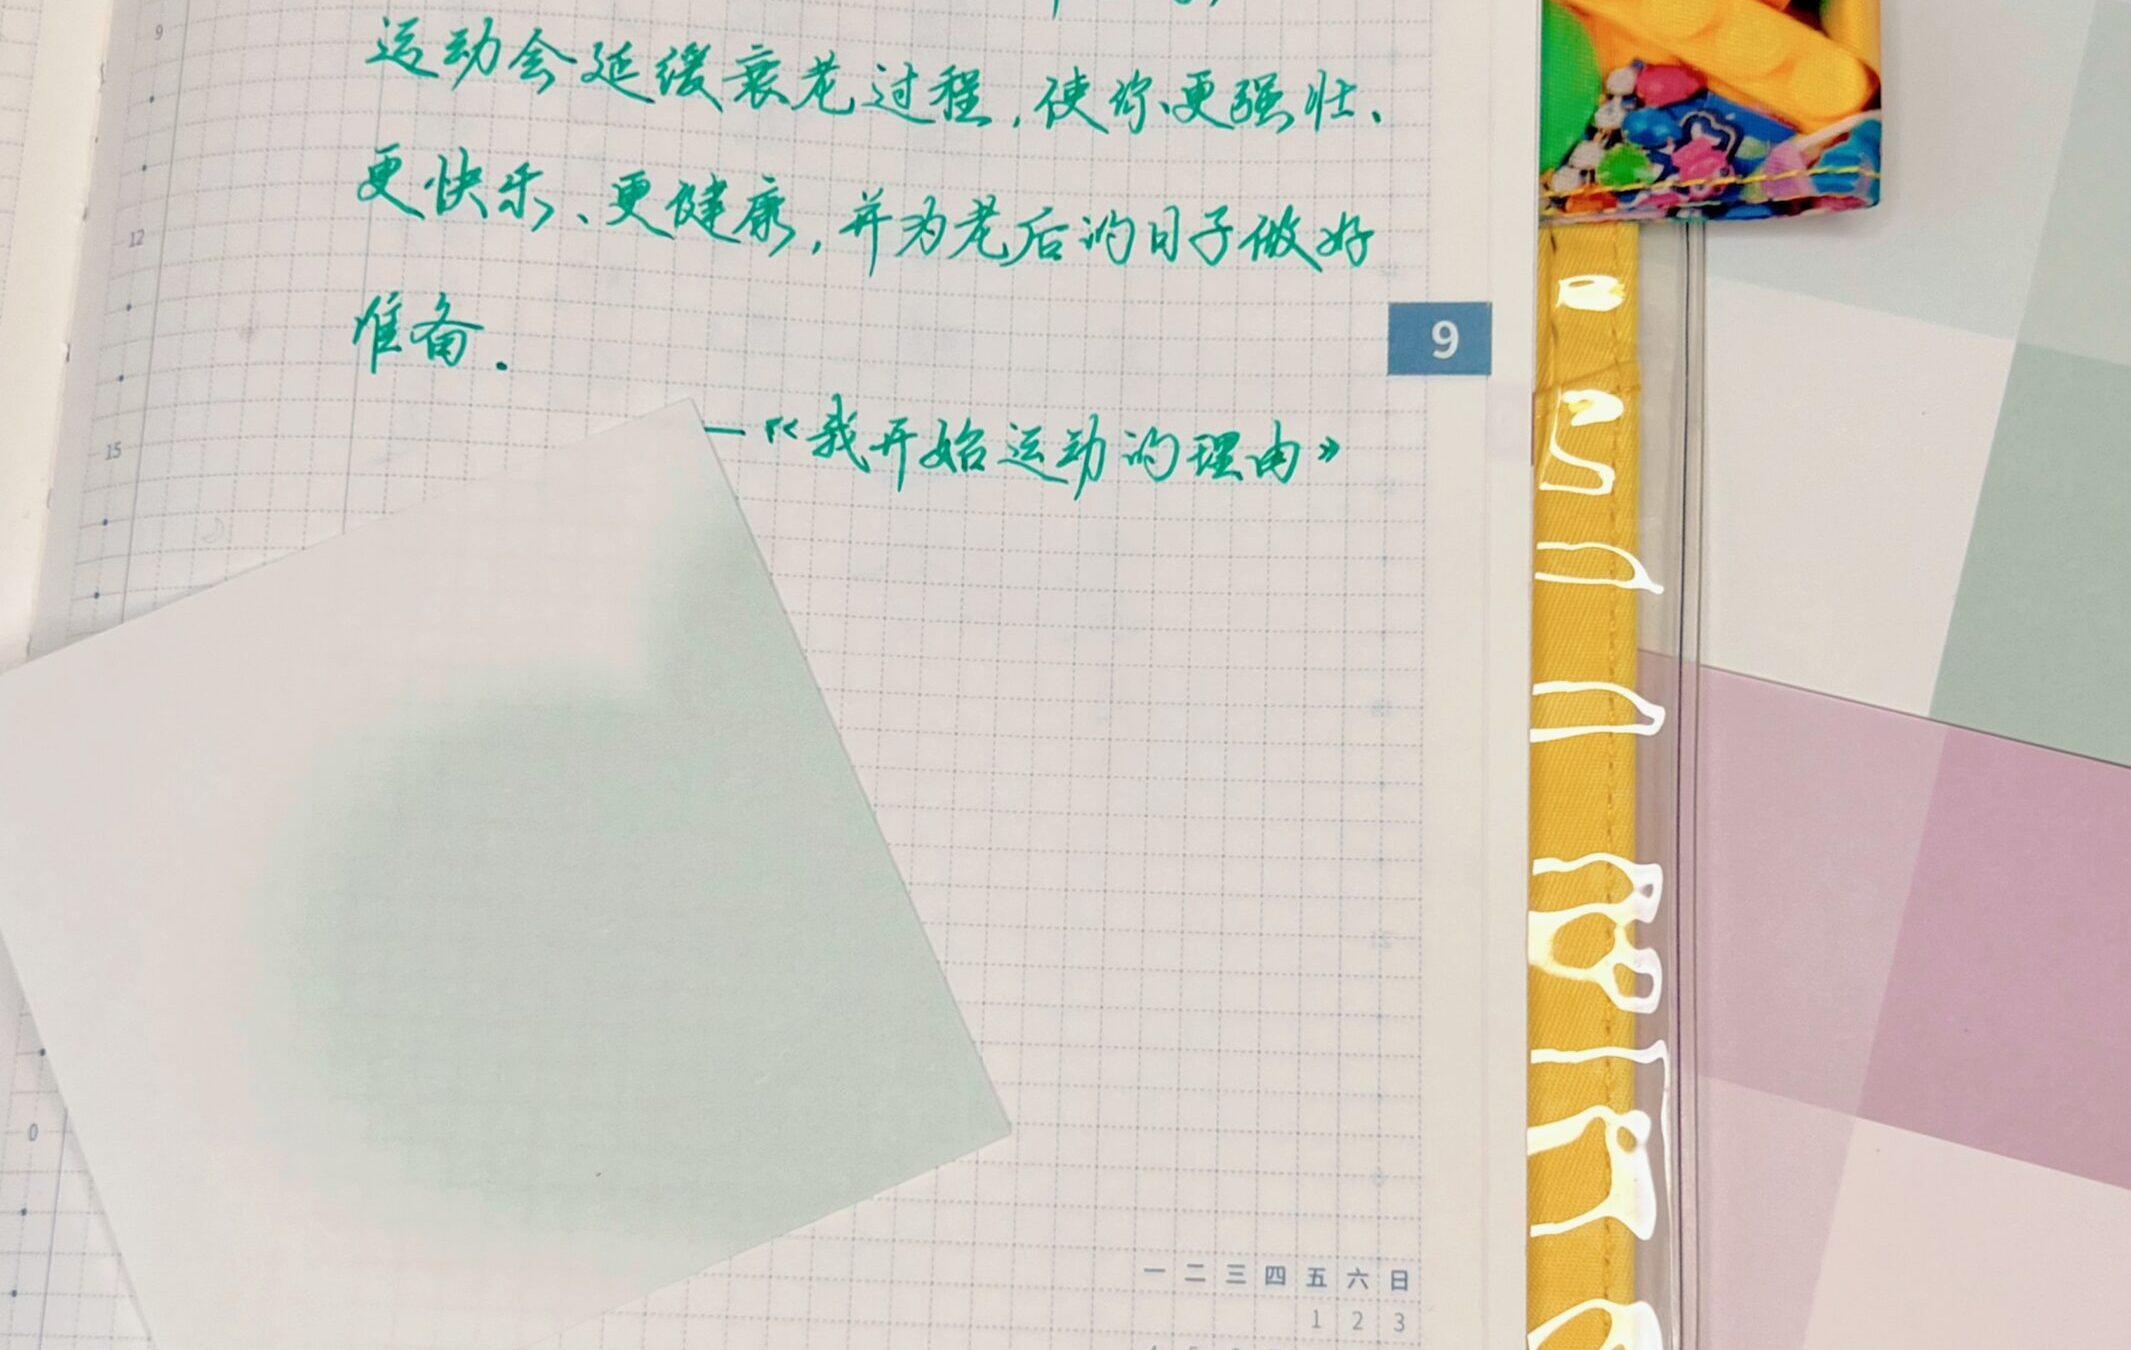 9
运动会延缓衰老过程,使你更强壮、
更快乐、更健康,并为老后的日子做好
12
准备.
9
15
—《我开始运动的理由》
0
一 二 三 四 五 六 日
1 2 3